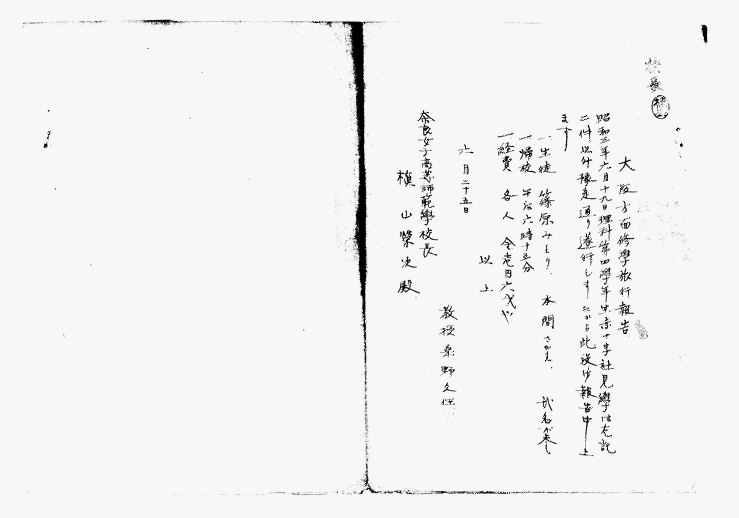 校長
大阪方面修學旅行報告
昭和三年六月十九日理科第四學年生赤十字社見學は左記
二件以外豫定通り遂行しましたから此段御報告申し上
ます
一、生徒 篠原みとり、本間さかえ、
一、帰校 午后六時十五分
一、経費 各人 金壱円六
以上
六月二十五日
教授 桑野久
奈良女子高等師範學校長
槇山榮次殿